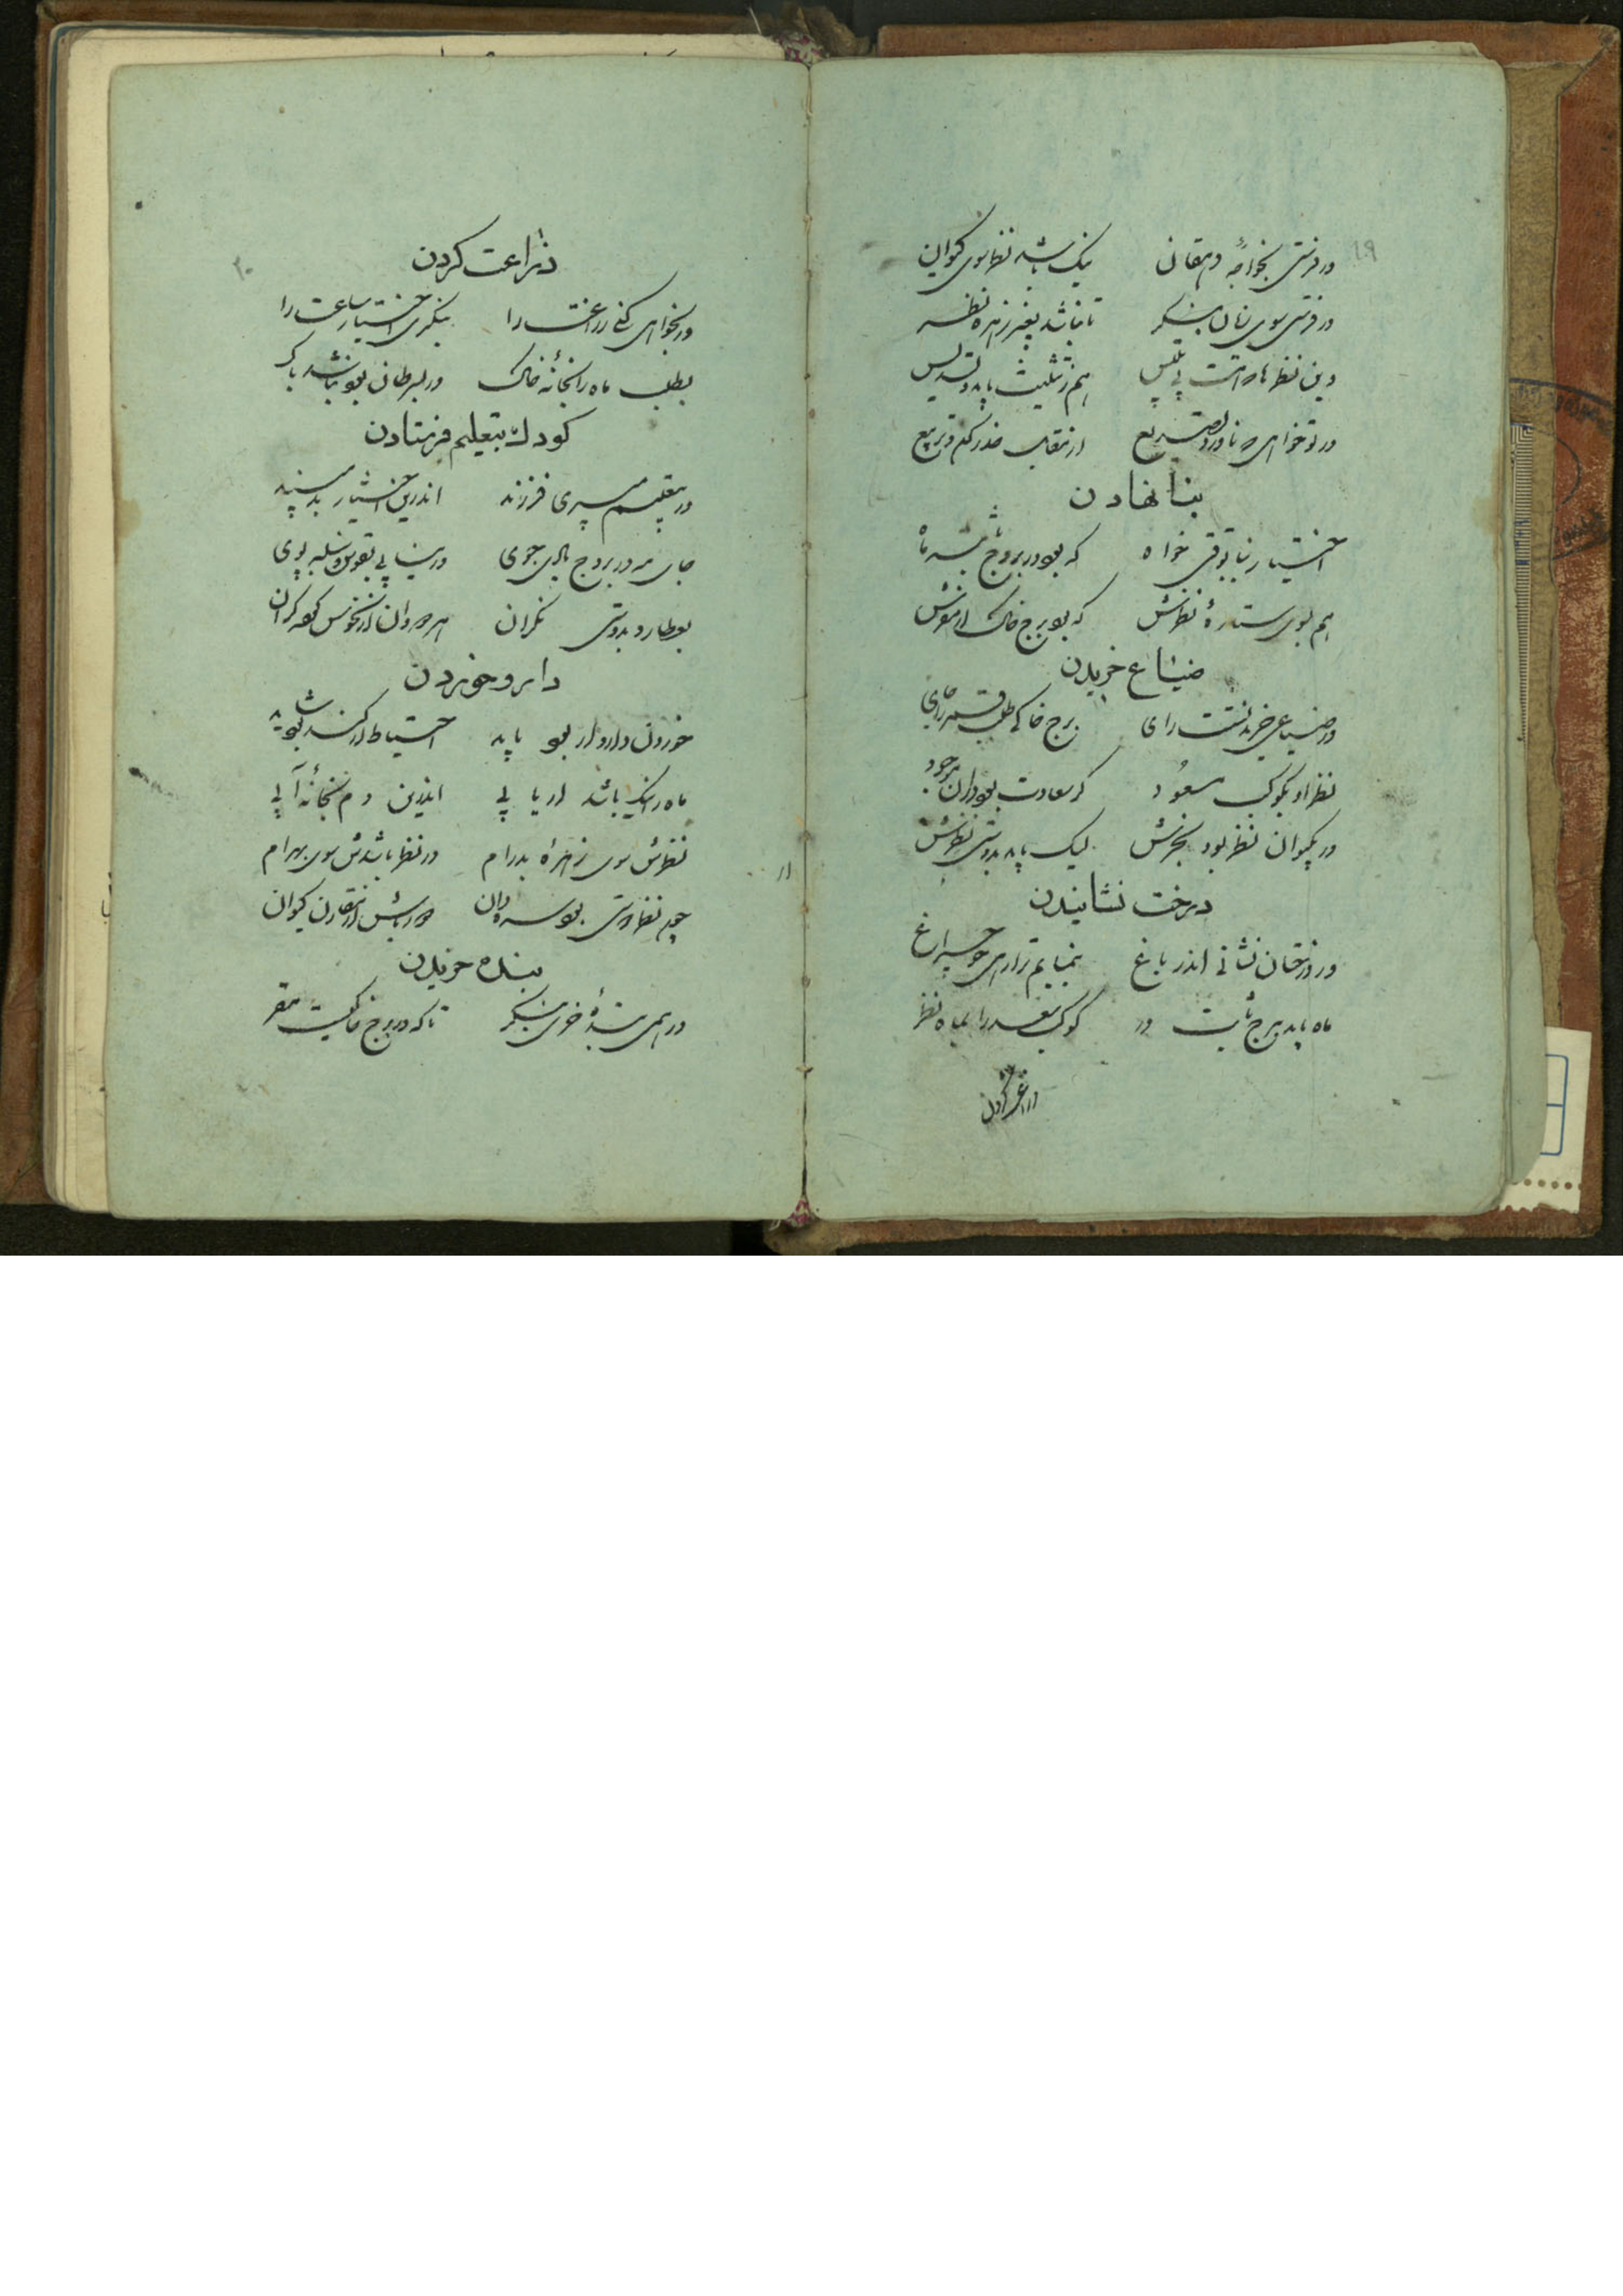 ۱۹
ور فرستی بخواجه دهقان نیک باشد نظر سوی کیوان
ور فرستی سوی زنان بنگر تا نباشد بغیر زهره نظر
وین نظرها که گفت بی تلبیس هم ز تثلیث باید و تسدیس
ور تو خواهی که ناورد تصدیع از مقابل حذر کن و تربیع
بنا نهادن
اختیار بنا بوقتی خواه که بود در بروج ثابته ماه
هم بسوی ستاره نظرش که بود برج خاک
ضیاع خریدن
ور ضیاعی خریدنت رای برج خاکی طلب قمر را جای
نظر او بکوکب مسعود کز سعادت بود در آن موجود
ور بکیوان نظر بود بخرش لیک باید بدوستی نظرش
درخت نشانیدن
ور درختان نشانی اندر باغ بنمایم ترا رهی چو چراغ
ماه باید ببرج ثابت در کوکب سعد را بماه نظر
زراعت کردن
۲۰
زراعت کردن
ور بخواهی کنی زراعت را بنگری اختیار ساعت را
بطلب ماه را بخانه خاک ور بسرطان بود نباشد باک
کودک بتعلیم فرستادن
ور بتعلیم میبری فرزند اندرین اختیار بد مپسند
جای مه در بروج بادی جوی ور نیابی بقوس و سنبله پوی
بعطارد بدوستی نگران
دارو خوردن
خوردن دارو ار بود باید احتیاط ار کنند شاید
ماه را نیک باشد ار یابی اندرین دم بخانه آبی
نظرش سوی زهره پدرام ور نظر باشدش سوی بهرام
چون نظر دوستی بود سره دان
بنده خریدن
ور همی بنده خری بنگر تا که در برج خاکیست قمر